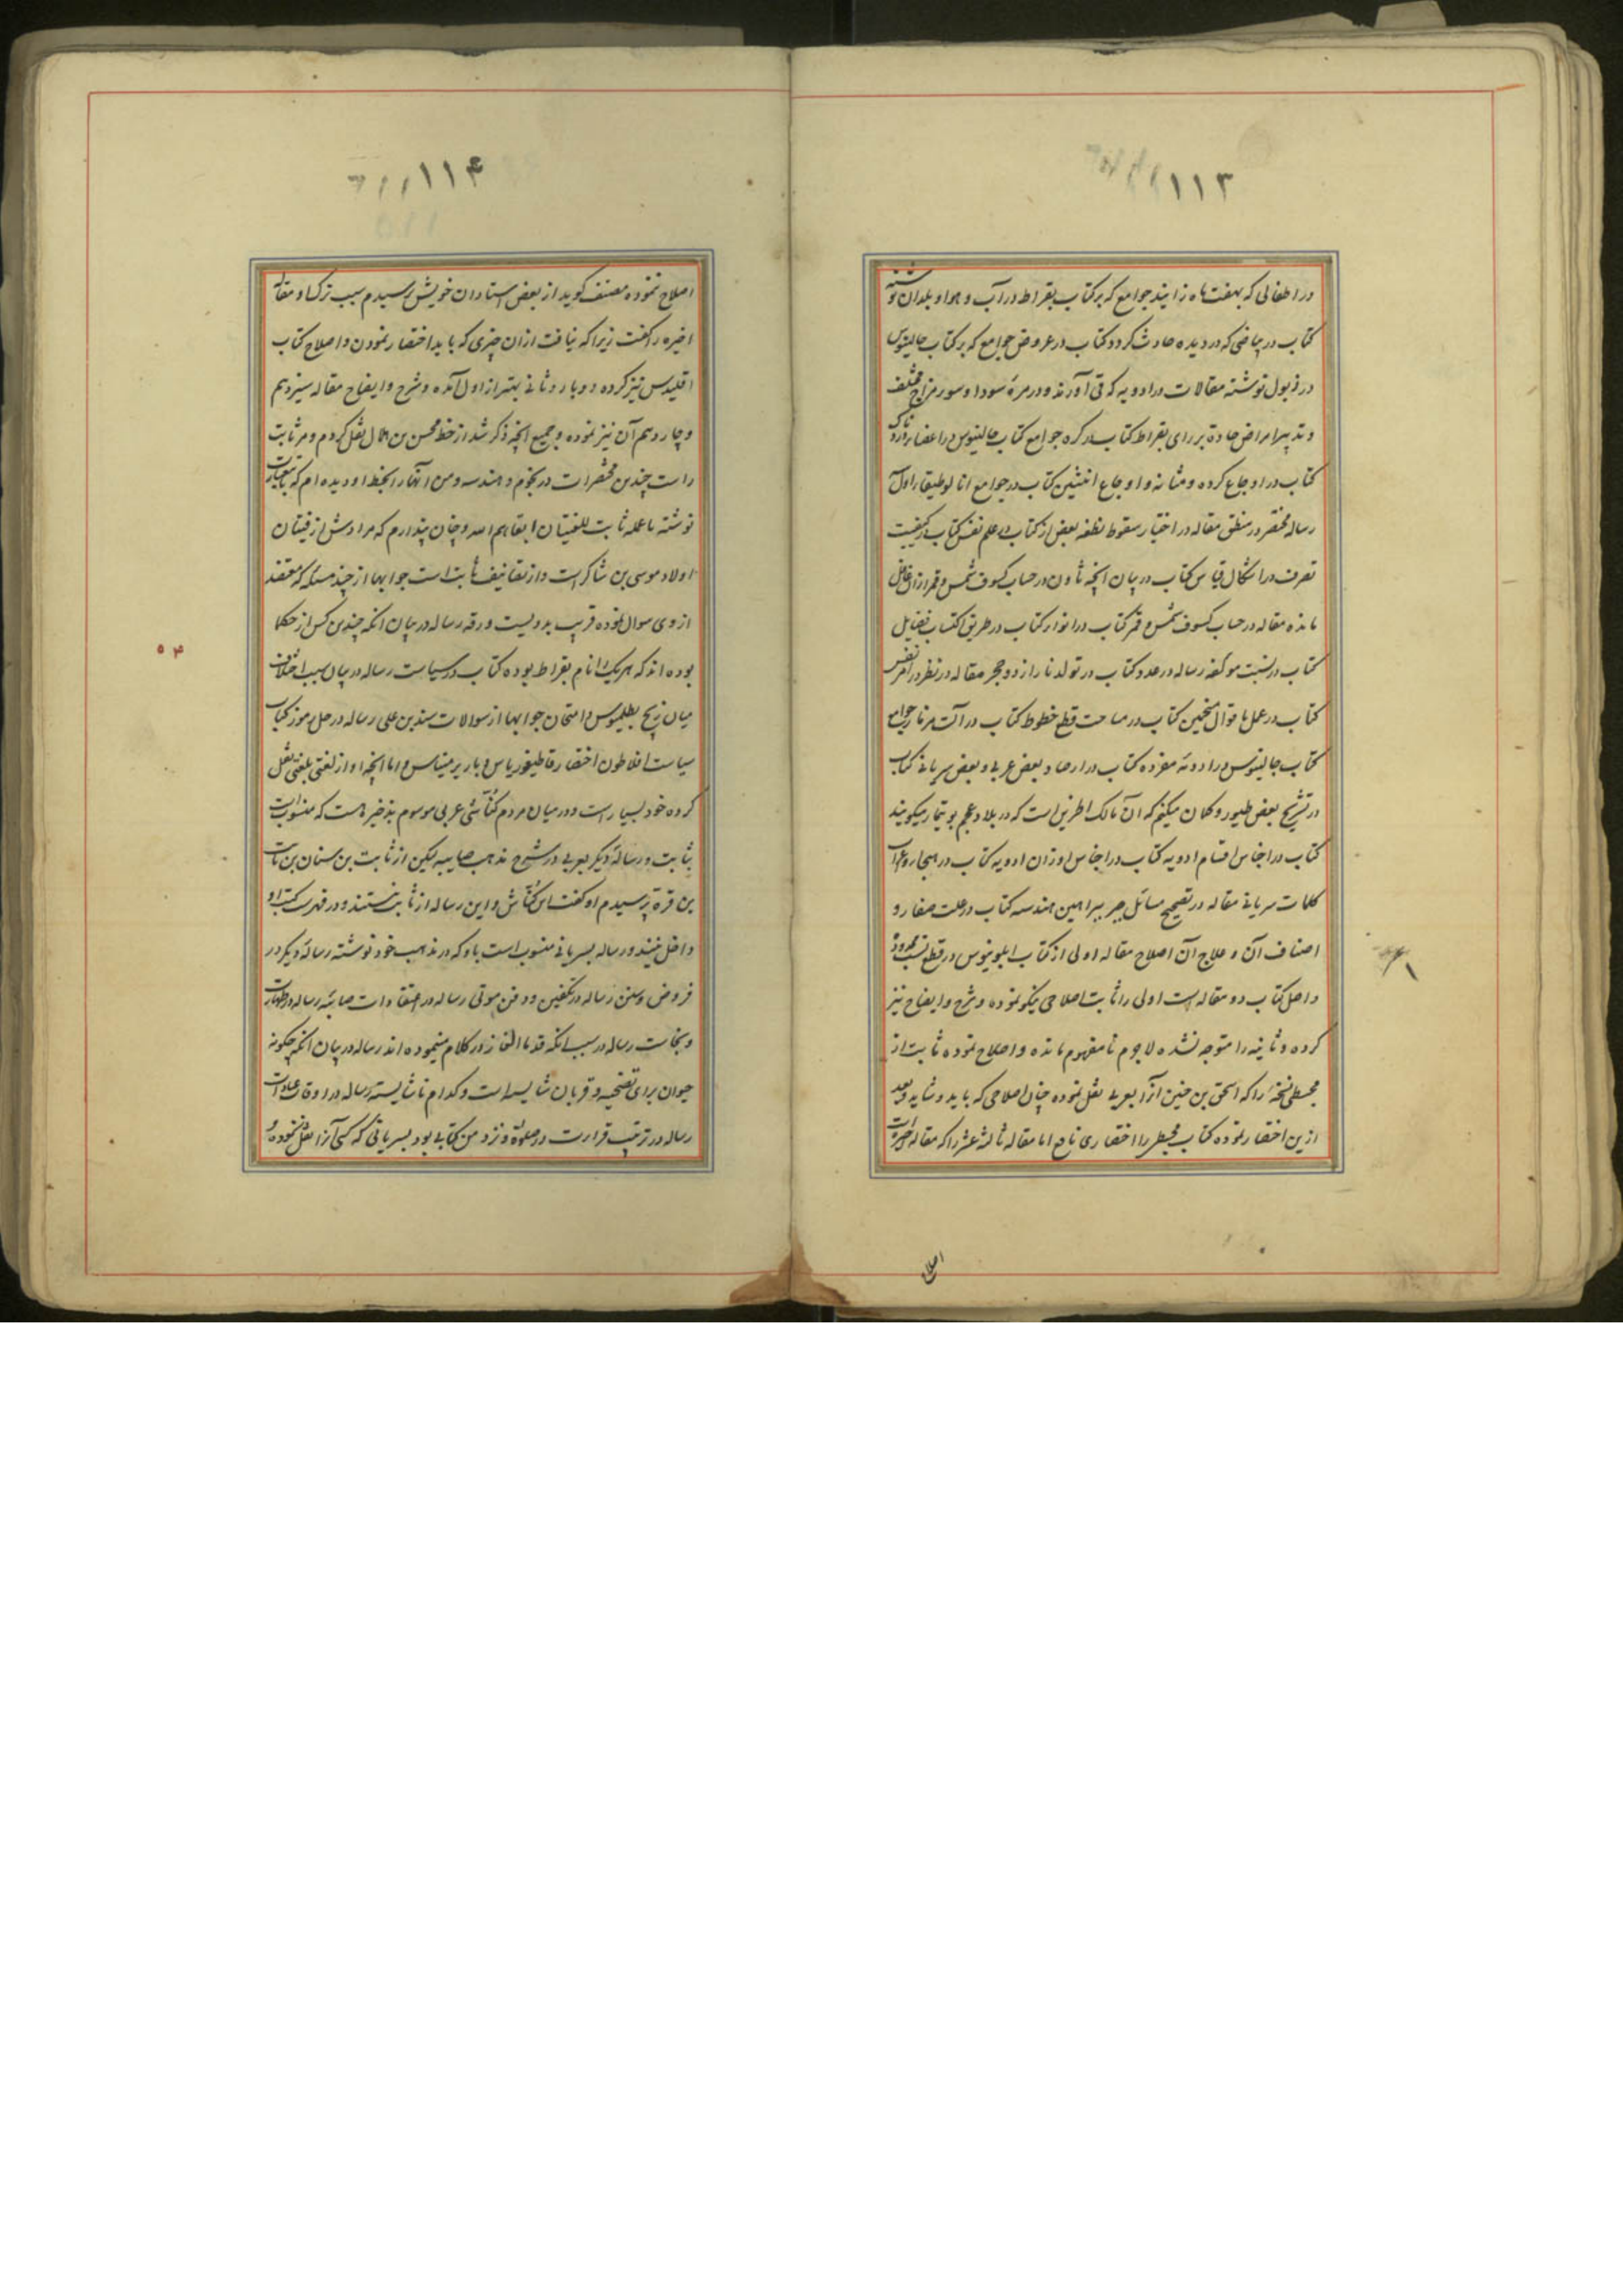 ۱۱۳
در اطفالی که بهفت ماه زایند جوامع که بر کتاب بقراط در آب و هوا و بلدان نوشته
کتاب در بیاضی که در دیده حادث گردد کتاب در عروض جوامع که بر کتاب جالینوس
در ذبول نوشته مقالات در ادویه که قی آورند و در مره سودا و سور مزاج مختلف
و تدبیر امراض حاده بر رای بقراط کتاب در کره جوامع کتاب جالینوس در اعضاء
کتاب در اوجاع کرده و مثانه و اوجاع انثیین کتاب در جوامع انالوطیقاء اول
رساله مختصر در منطق مقاله در اختیار سقوط نطفه بعض از کتاب در علم نفس کتاب در کیفیت
تصرف در اشکال قیاس کتاب در بیان انچه ثاون در حساب کسوف شمس و قمر ازان غافل
مانده مقاله در حساب کسوف شمس و قمر کتاب در انوار کتاب در طریق اکتساب فضایل
کتاب در نسبت مولفه رساله در عدد کتاب در تولد نار از دو حجر مقاله در نظر در امر نفس
کتاب در عمل با قوال منجمین کتاب در مساحت قطع خطوط کتاب در آلت مرنار جوامع
کتاب جالینوس در ادویه مفرده کتاب در ارصاد بعض عربی و بعض سریانی کتاب
در تشریح بعض طیور و کمان میکنم که آن مالک الحزین است که در بلاد عجم بوتیمار میکویند
کتاب در اجناس اقسام ادویه کتاب در اجناس اوزان ادویه کتاب در هجا و اعراب
کلمات سریانی مقاله در تصحیح مسائل جبر ببراهین هندسه کتاب در علت صفار و
اصناف آن و علاج آن اصلاح مقاله اولی از کتاب ابلونیوس در قطع نسب محدوده
و اصل کتاب دو مقاله است اولی را ثابت اصلاحی نیکو نموده و شرح و ایضاح نیز
کرده و ثانیه را متوجه نشده لاجرم نامفهوم مانده و اصلاح نموده ثابت از
مجسطی نسخه را که اسحق بن حنین آنرا بعربی نقل نموده چنان اصلاحی که باید و شاید و بعد
ازین اختصار نموده کتاب مجسطی را اختصاری نافع اما مقاله ثالثه عشر را که مقاله اخیر است
اصلاح
۱۱۴
اصلاح نموده مصنف کوید از بعض استادان خویش پرسیدم سبب ترک او مقاله
اخیره را گفت زیرا که نیافت ازان چیزی که باید اختصار نمودن و اصلاح کتاب
اقلیدس نیز کرده دو بار و ثانی بهتر از اول آمده و شرح و ایضاح مقاله سیزدهم
و چاردهم آن نیز نموده و جمیع انچه ذکر شد از خط محسن بن هلال نقل کردم و مر ثابت
راست چندین مختصرات در نجوم و هندسه و من آنها را بخط او دیده ام که باین عبارت
نوشته ما عمله ثابت للفتیان ابقاهم الله و چنان پندارم که مرادش از فتیان
اولاد موسی بن شاکر است و از تصانیف ثابت است جوابها از چند مسئله که معتضد
از وی سوال نموده قریب بدویست ورقه رساله در بیان انکه چندین کس از حکما
بوده اند که هریک را نام بقراط بوده کتاب در سیاست رساله در بیان سبب اختلاف
میان زیج بطلمیوس و امتحان جوابها از سوالات سند بن علی رساله در حل رموز کتاب
سیاست افلاطون اختصار قاطیغوریاس و باریرمیناس و اما انچه او از لغتی بلغتی نقل
کرده خود بسیار است و در میان مردم کناشی عربی موسوم بذخیره هست که منسوبست
بثابت و رساله دیکر بعربی در شرح مذهب صابیه لیکن از ثابت بن سنان بن ثابت
بن قرة پرسیدم او گفت این کناش و این رساله از ثابت نیستند و در فهرست کتب او
داخل نیند و رساله بسریانی منسوب است باو که در مذهب خود نوشته رساله دیکر در
فروض و سنن رساله در تکفین و دفن موتی رساله در اعتقادات صابئه رساله در طهارت
و نجاست رساله در سبب انکه قدما الغاز در کلام مینموده اند رساله در بیان انکه چکونه
حیوان برای تضحیه و قربان شایسته است و کدام ناشایسته رساله در اوقات عبادات
رساله در ترتیب قراءت در صلوة و نزد من کتابی بود بسریانی که کسی آنرا نقل ننموده و
۵۴